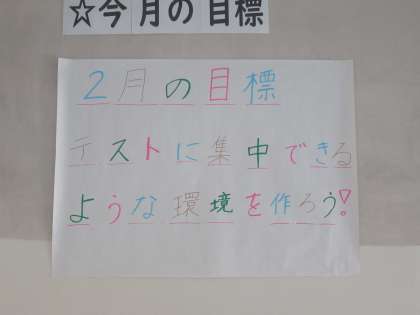 ☆今月の目標
2月の目標
テストに集中できる
ような環境を作ろう!